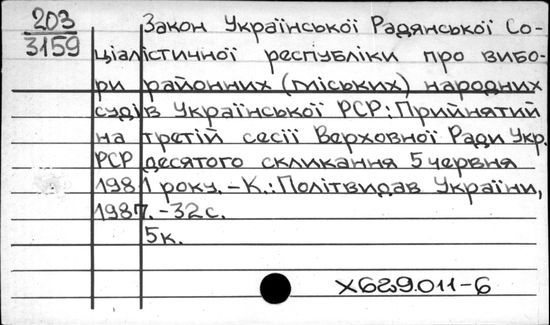 203
3159
Закон Української Радянської Со-
ціалістичної республіки про вибо-
ри районних (міських) народних
судів Української РСР: Прийнятий
на третій сесії Верховної Ради Укр.
РСР десятого скликання 5 червня
1981 року. - К.: Політвидав України,
1987. - 32 с.
5к.
Х629.011-6